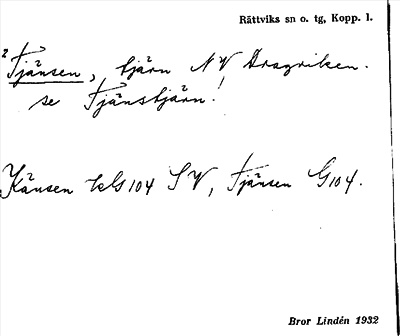 Rättviks sn o. tg, Kopp. l.
2 Tjänsen, tjärn NV Dragriken.
se Tjänstjärn!
Känsen SV, Tjänsen G104.
Bror Lindén 1932